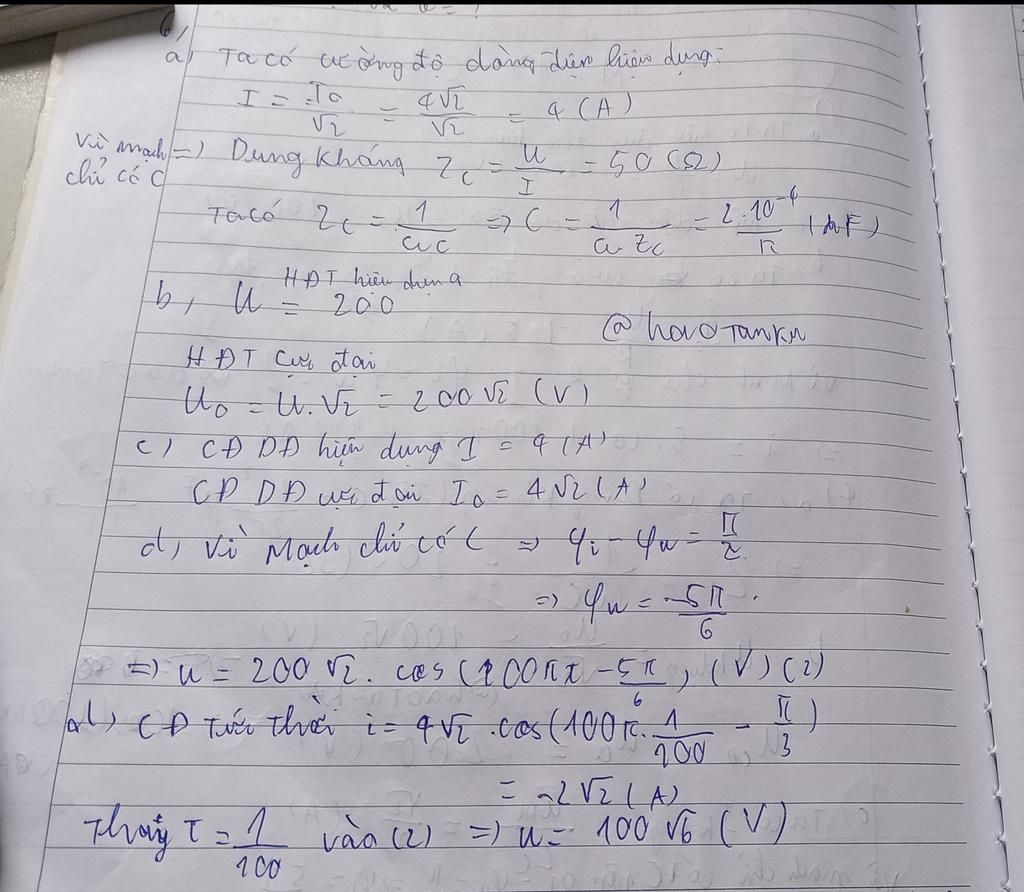 6,
a) Ta có cường độ dòng điện hiệu dụng:
I = I₀/√2 = 4√2/√2 = 4 (A)
Vì mạch chỉ có C
=> Dung kháng Z_C = U/I = 50 (Ω)
Ta có Z_C = 1/ωC => C = 1/ω Z_C = 2.10⁻⁴/π (F)
HĐT hiệu dụng
b, U = 200
@havotankn
HĐT cực đại
U₀ = U.√2 = 200√2 (V)
c) CĐ DĐ hiệu dụng I = 4 (A)
CĐ DĐ cực đại I₀ = 4√2 (A)
d, Vì Mạch chỉ có C => φi - φu = π/2
=> φu = -5π/6.
=> u = 200√2. cos(100πt - 5π/6) (V) (2)
d) CĐ Tức thời i = 4√2.cos(100π.1/200 - π/3)
= 2√2 (A)
Thay T = 1/100 vào (2) => u = 100√6 (V)